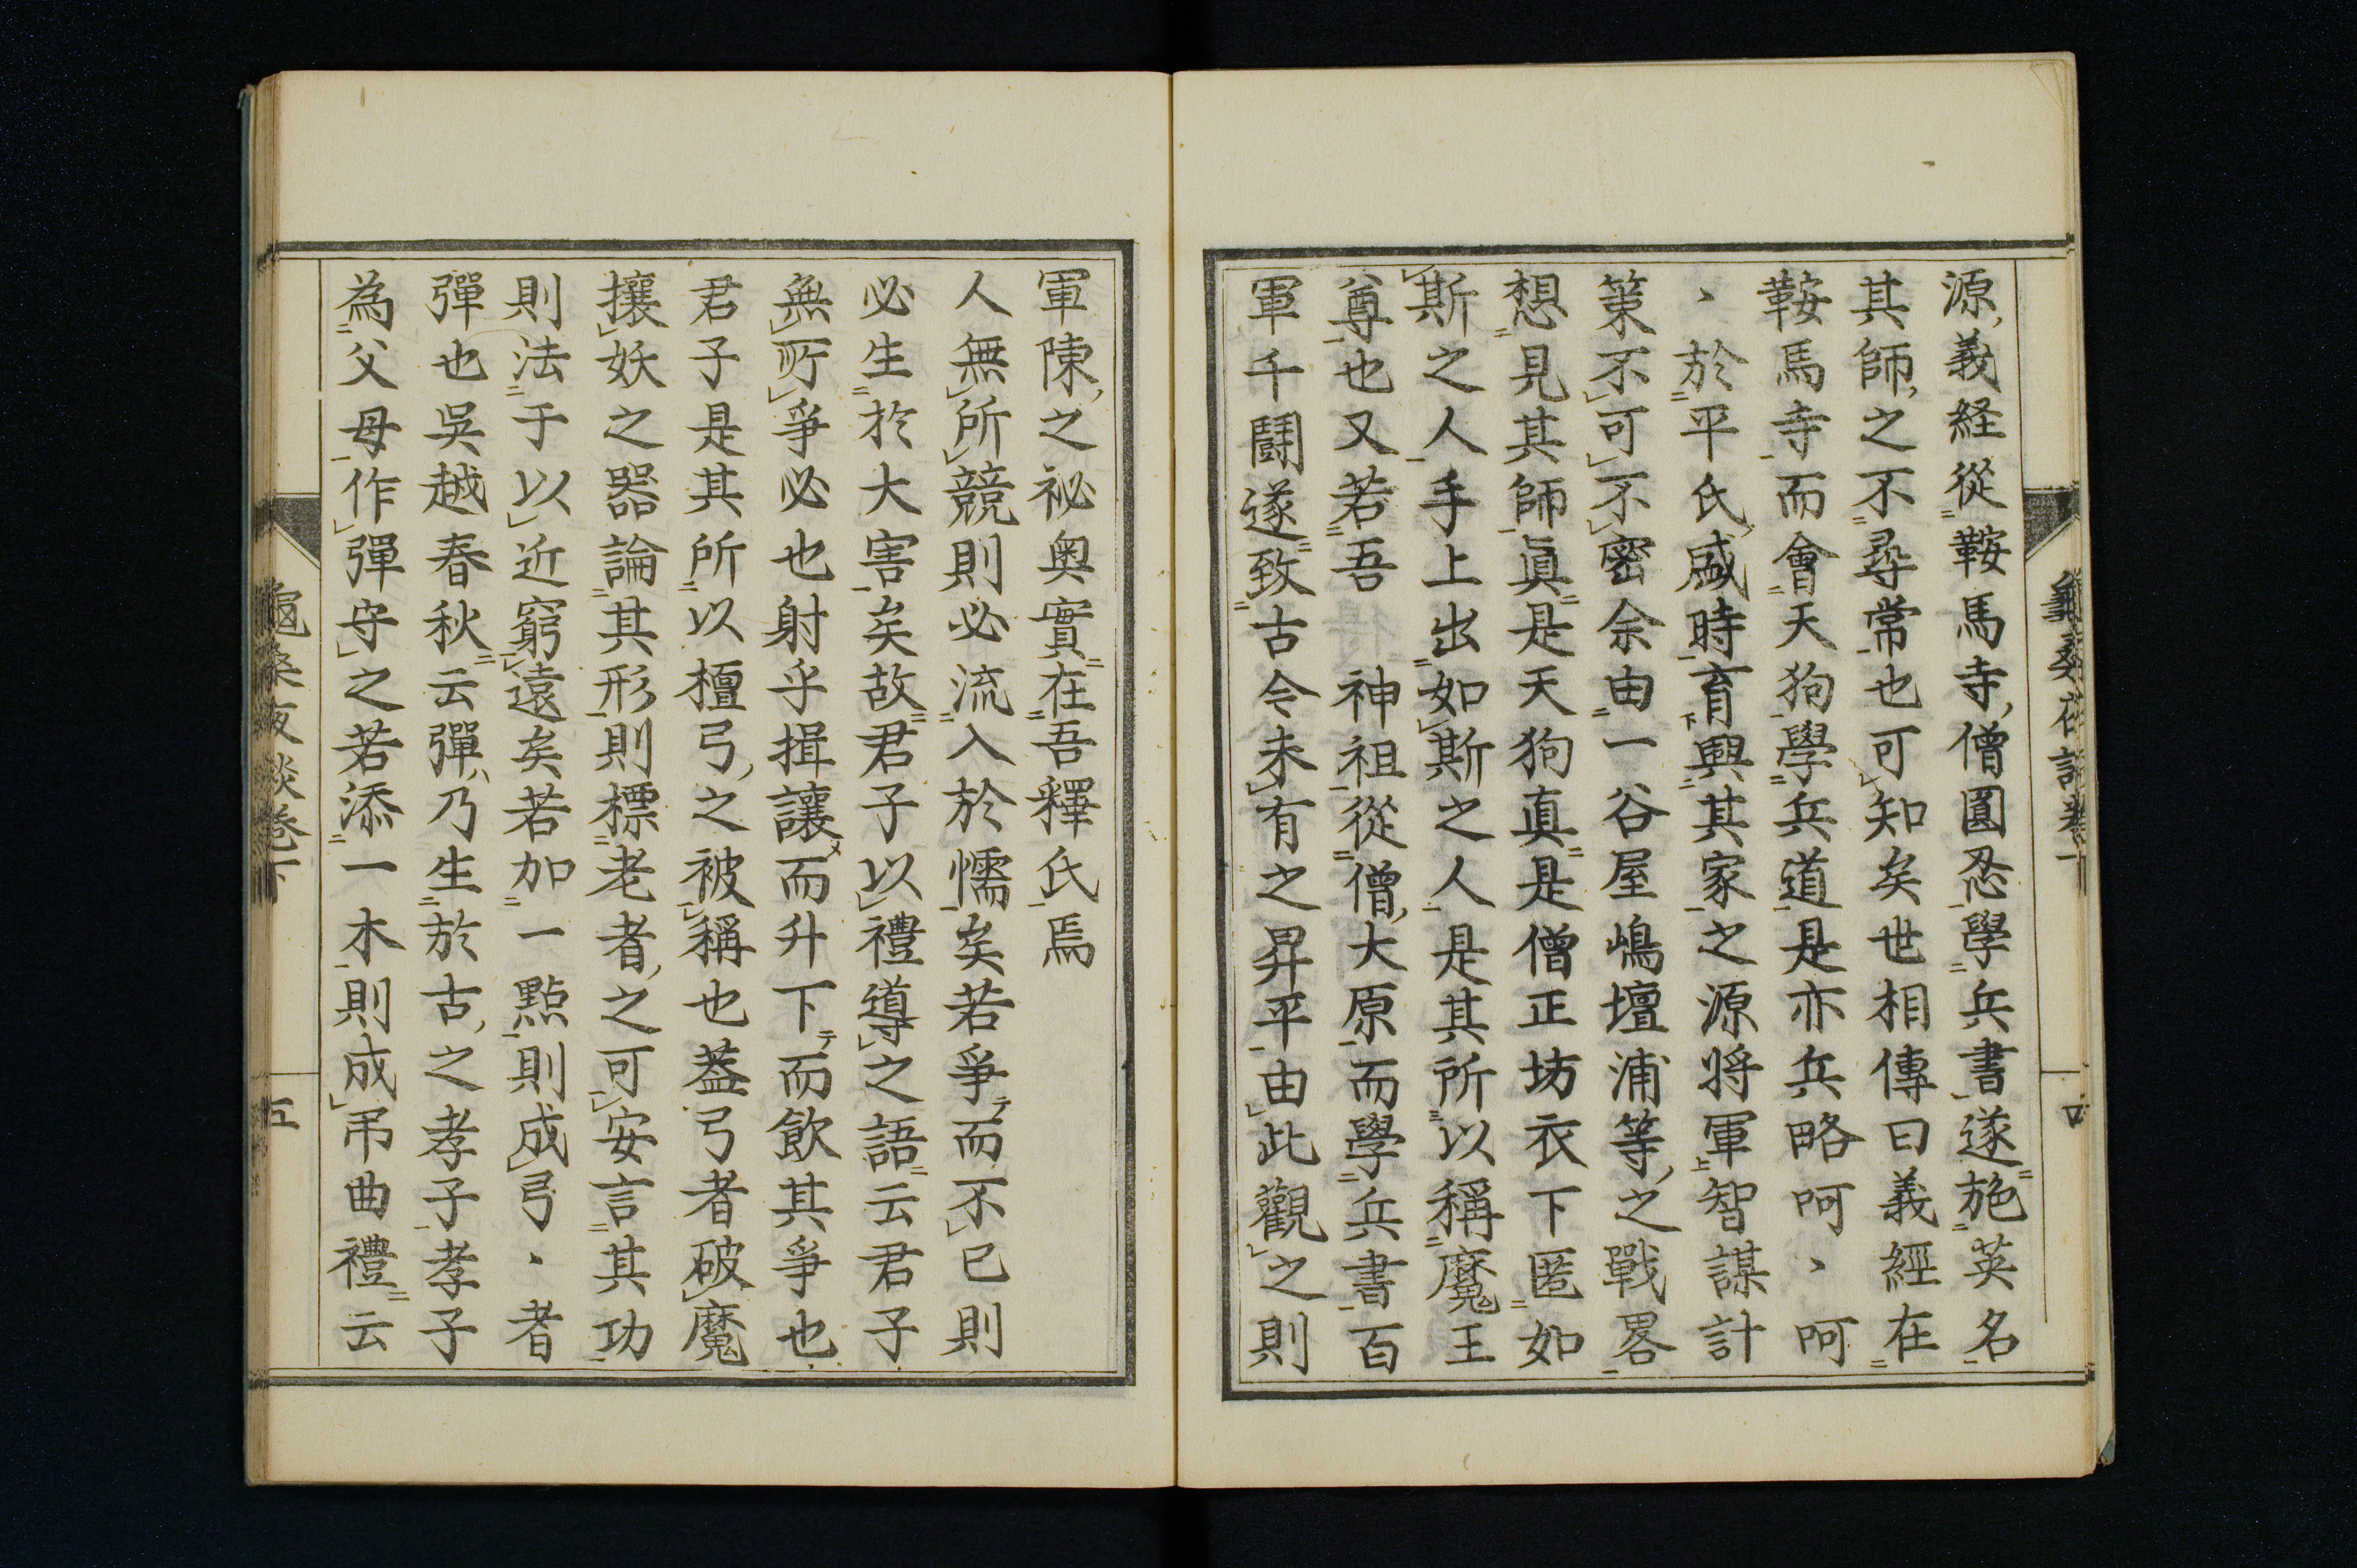 源義経從鞍馬寺僧圓忍學兵書遂施英名
其師之不尋常也可知矣世相傳曰義經在
鞍馬寺而會天狗學兵道是亦兵略呵、呵
、於平氏盛時育興其家之源将軍智謀計
策不可不密余由一谷屋嶋壇浦等之戰畧
想見其師眞是天狗真是僧正坊衣下匿如
斯之人手上出如斯之人是其所以稱魔王
尊也又若吾　神祖從僧大原而學兵書百
軍千鬪遂致古今未有之昇平由此觀之則
軍陳之祕奧實在吾釋氏焉
人無所競則必流入於懦矣若爭而不已則
必生於大害矣故君子以禮導之語云君子
無所爭必也射乎揖讓而升下而飲其爭也
君子是其所以檀弓之被稱也葢弓者破魔
攘妖之器論其形則標老者之可安言其功
則法于以近窮遠矣若加一點則成弓、者
彈也吳越春秋云彈乃生於古之孝子孝子
為父母作彈守之若添一木則成吊曲禮云
龜桑夜談卷下
五